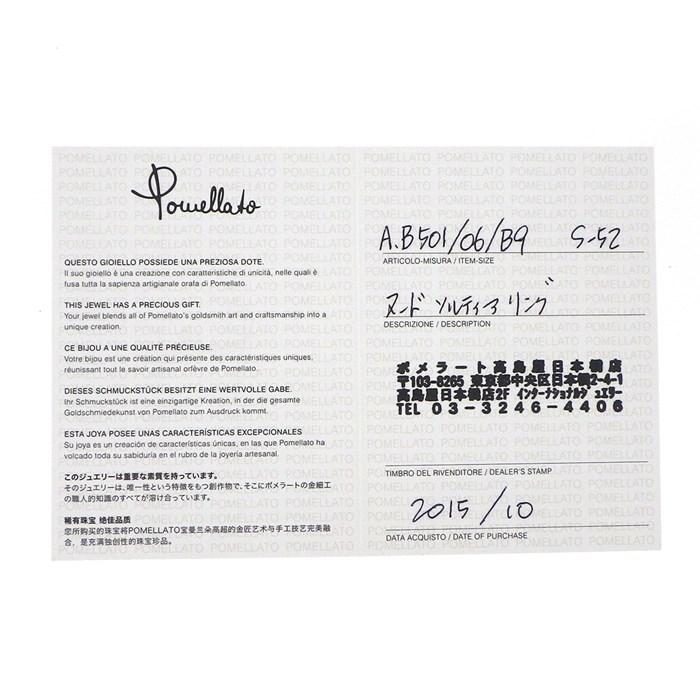 Pomellato
QUESTO GIOIELLO POSSIEDE UNA PREZIOSA DOTE.
Il suo gioiello è una creazione con caratteristiche di unicità, nelle quali è
fusa tutta la sapienza artigianale orafa di Pomellato.
THIS JEWEL HAS A PRECIOUS GIFT.
Your jewel blends all of Pomellato's goldsmith art and craftsmanship into a
unique creation.
CE BIJOU A UNE QUALITÉ PRÉCIEUSE.
Votre bijou est une création qui présente des caractéristiques uniques,
réunissant tout le savoir artisanal orfèvre de Pomellato.
DIESES SCHMUCKSTÜCK BESITZT EINE WERTVOLLE GABE.
Ihr Schmuckstück ist eine einzigartige Kreation, in der die gesamte
Goldschmiedekunst von Pomellato zum Ausdruck kommt.
ESTA JOYA POSEE UNAS CARACTERÍSTICAS EXCEPCIONALES
Su joya es un creación de características únicas, en las que Pomellato ha
volcado toda su sabiduría en el rubro de la joyería artesanal.
このジュエリーは重要な素質を持っています。
そのジュエリーは、唯一性という特徴をもつ創作物で、そこにポメラートの金細工
の職人的知識のすべてが溶け合っています。
稀有珠宝 绝佳品质
您所购买的珠宝将POMELLATO宝曼兰朵高超的金匠艺术与手工技艺完美融
合，是充满独创性的珠宝珍品。
A.B501/06/B9 S-52
ARTICOLO-MISURA / ITEM-SIZE
ヌード ソルティア リング
DESCRIZIONE / DESCRIPTION
ポメラート高島屋日本橋店
〒103-8265 東京都中央区日本橋2-4-1
高島屋日本橋店2F インターナショナルジュエリー
TEL 03-3246-4406
TIMBRO DEL RIVENDITORE / DEALER'S STAMP
2015/10
DATA ACQUISTO / DATE OF PURCHASE